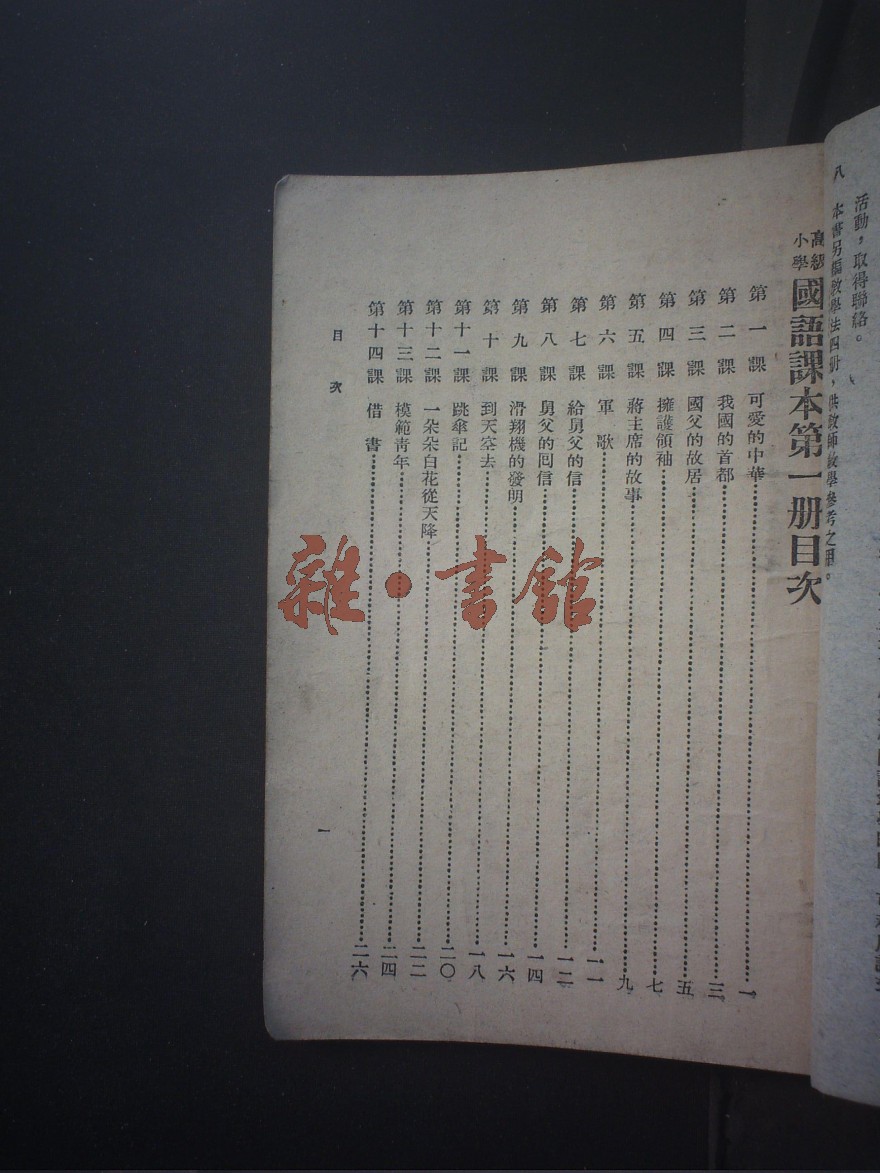 活動，取得聯絡。
八 本書另編教學法四册，供教師教學參考之用。
高級小學國語課本第一册目次
第一課 可愛的中華 一
第二課 我國的首都 三
第三課 國父的故居 五
第四課 擁護領袖 七
第五課 蔣主席的故事 九
第六課 軍歌 一一
第七課 給舅父的信 一二
第八課 舅父的囘信 一四
第九課 滑翔機的發明 一六
第十課 到天空去 一八
第十一課 跳傘記 二〇
第十二課 一朵朵白花從天降 二二
第十三課 模範青年 二四
第十四課 借書 二六
目次
一
雜·書館